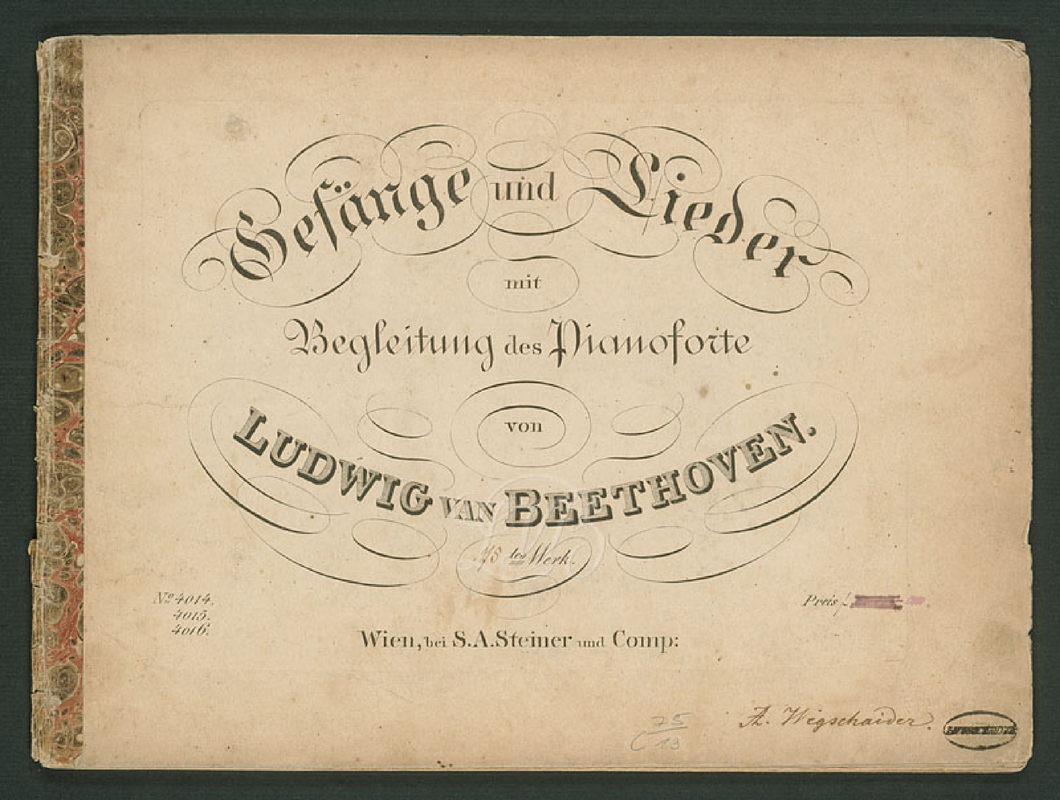 Gesänge und Lieder
mit
Begleitung des Pianoforte
von
LUDWIG VAN BEETHOVEN.
tes Werk.
No 4014.
4015.
4016.
Preis
Wien, bei S.A. Steiner und Comp:
75
13
A. Wegschaider.